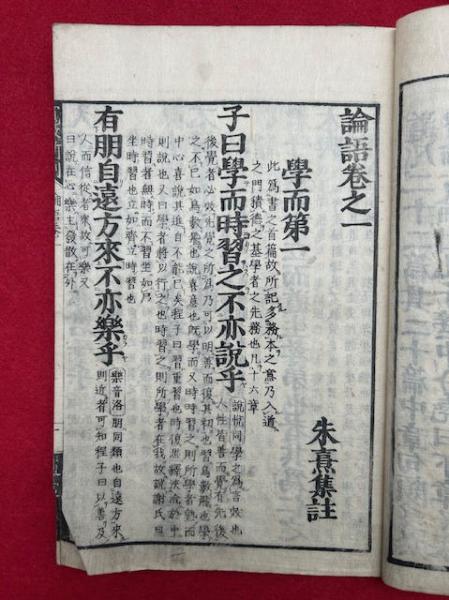 論語卷之一
朱熹集註
學而第一
此爲書之首篇故所記多務本之意乃入道
之門積德之基學者之先務也凡十六章
子曰學而時習之不亦說乎
說悅同學之爲言效也
人性皆善而覺有先後
後覺者必效先覺之所爲乃可以明善而復其初也習鳥數飛也學
之不已如鳥數飛也說喜意也既學而又時時習之則所學者熟而
中心喜說其進自不能已矣程子曰習重習也時復思繹浹洽於中
則說也又曰學者將以行之也時習之則所學者在我故說謝氏曰
時習者無時而不習坐如尸
坐時習也立如齊立時習也
有朋自遠方來不亦樂乎
樂音洛 朋同類也自遠方來
則近者可知程子曰以善及
人而信從者衆故可樂又
曰說在心樂主發散在外